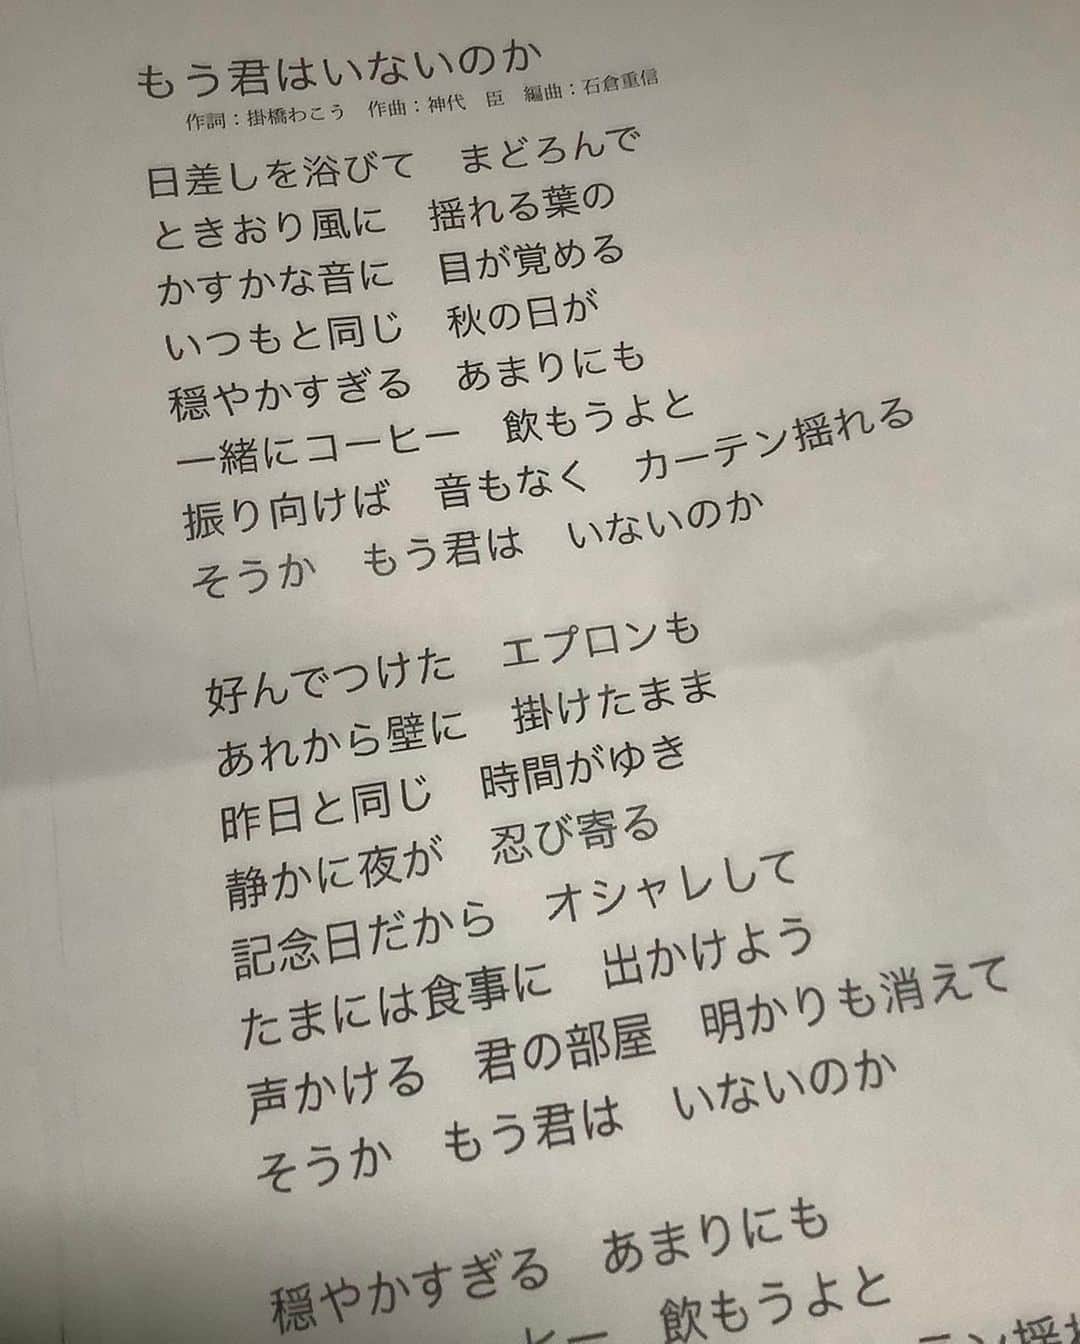 もう君はいないのか
作詞：掛橋わこう　作曲：神代　臣　編曲：石倉重信
日差しを浴びて　まどろんで
ときおり風に　揺れる葉の
かすかな音に　目が覚める
いつもと同じ　秋の日が
穏やかすぎる　あまりにも
一緒にコーヒー　飲もうよと
振り向けば　音もなく　カーテン揺れる
そうか　もう君は　いないのか
好んでつけた　エプロンも
あれから壁に　掛けたまま
昨日と同じ　時間がゆき
静かに夜が　忍び寄る
記念日だから　オシャレして
たまには食事に　出かけよう
声かける　君の部屋　明かりも消えて
そうか　もう君は　いないのか
穏やかすぎる　あまりにも
ヒー　飲もうよと
テン揺れ